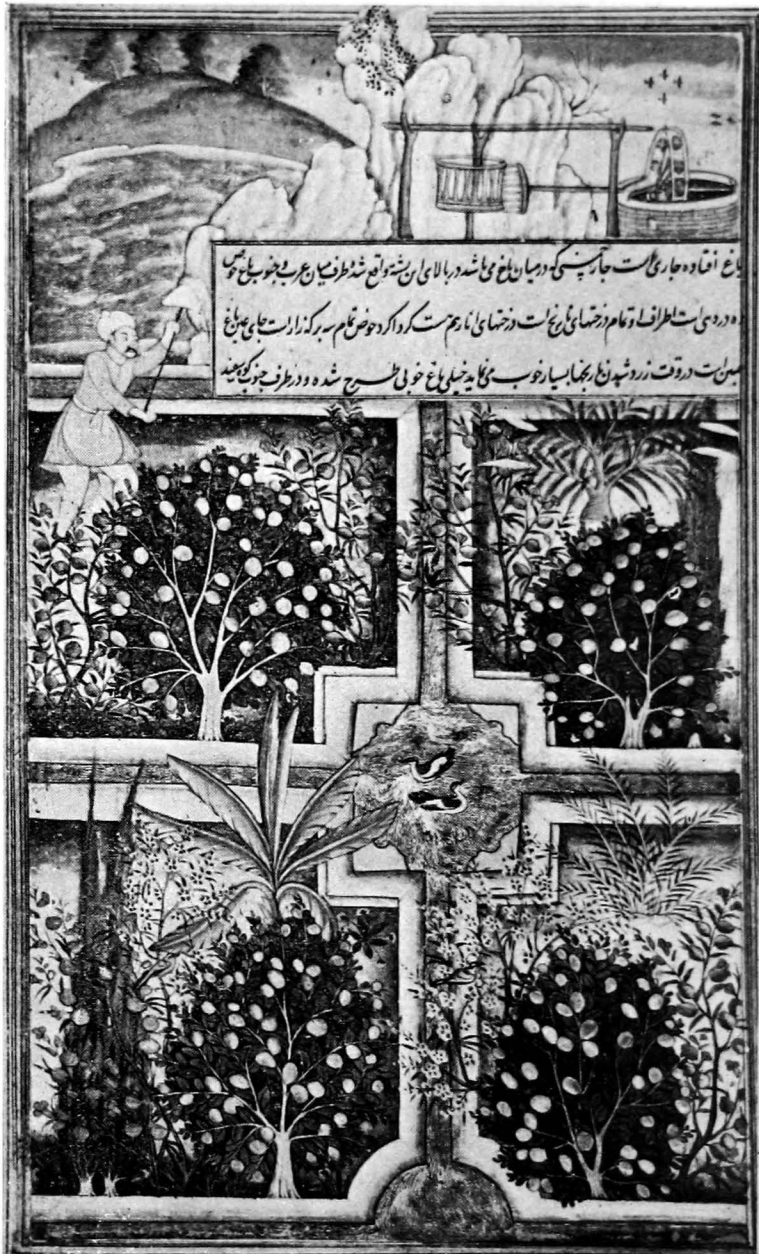 باغ افتاده جاری است چارچمنی که در میان باغ می باشد در بالای این پشته واقع شد و طرف میان غرب و جنوب باغ حوض
ده در ده است اطراف او تمام درختهای نارنج است درختهای انار هم هست کرداکرد حوض تمام سه برکه زار است جای عین باغ
همین است در وقت زرد شدن نارنجها بسیار خوب می نماید خیلی باغ خوبی طرح شده و در طرف جنوب کوه سفید